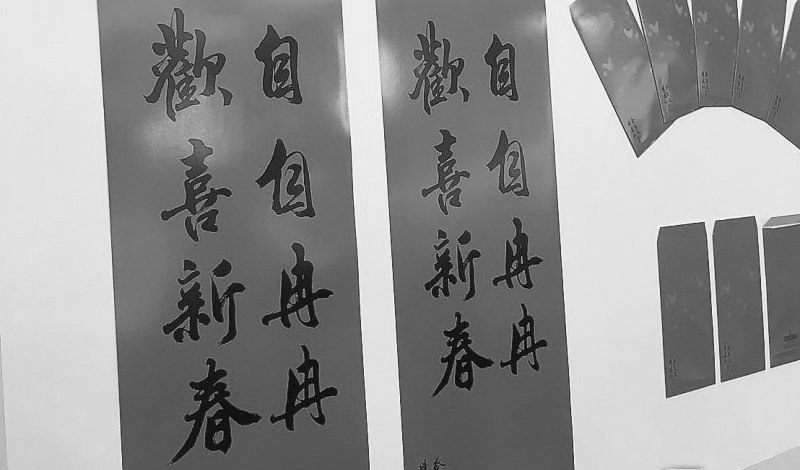 自自冉冉
歡喜新春
自自冉冉
歡喜新春